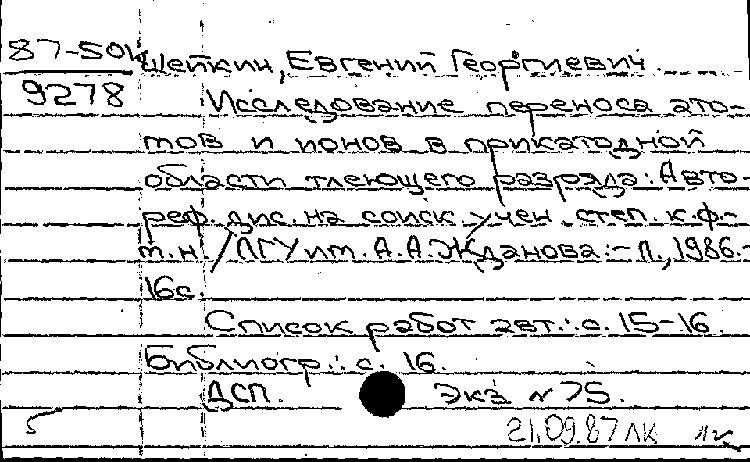 87-50К Щеткин, Евгений Георгиевич
9278 Исследование переноса ато-
мов и ионов в прикатодной
области тлеющего разряда: Авто-
реф. дис. на соиск. учен. степ. к.ф.-
м.н. / ЛГУ им. А.А. Жданова. – Л., 1986. –
16с.
Список работ авт.: с. 15-16.
Библиогр.: с. 16.
ДСП. Экз №75.
5 21.09.87 ЛК